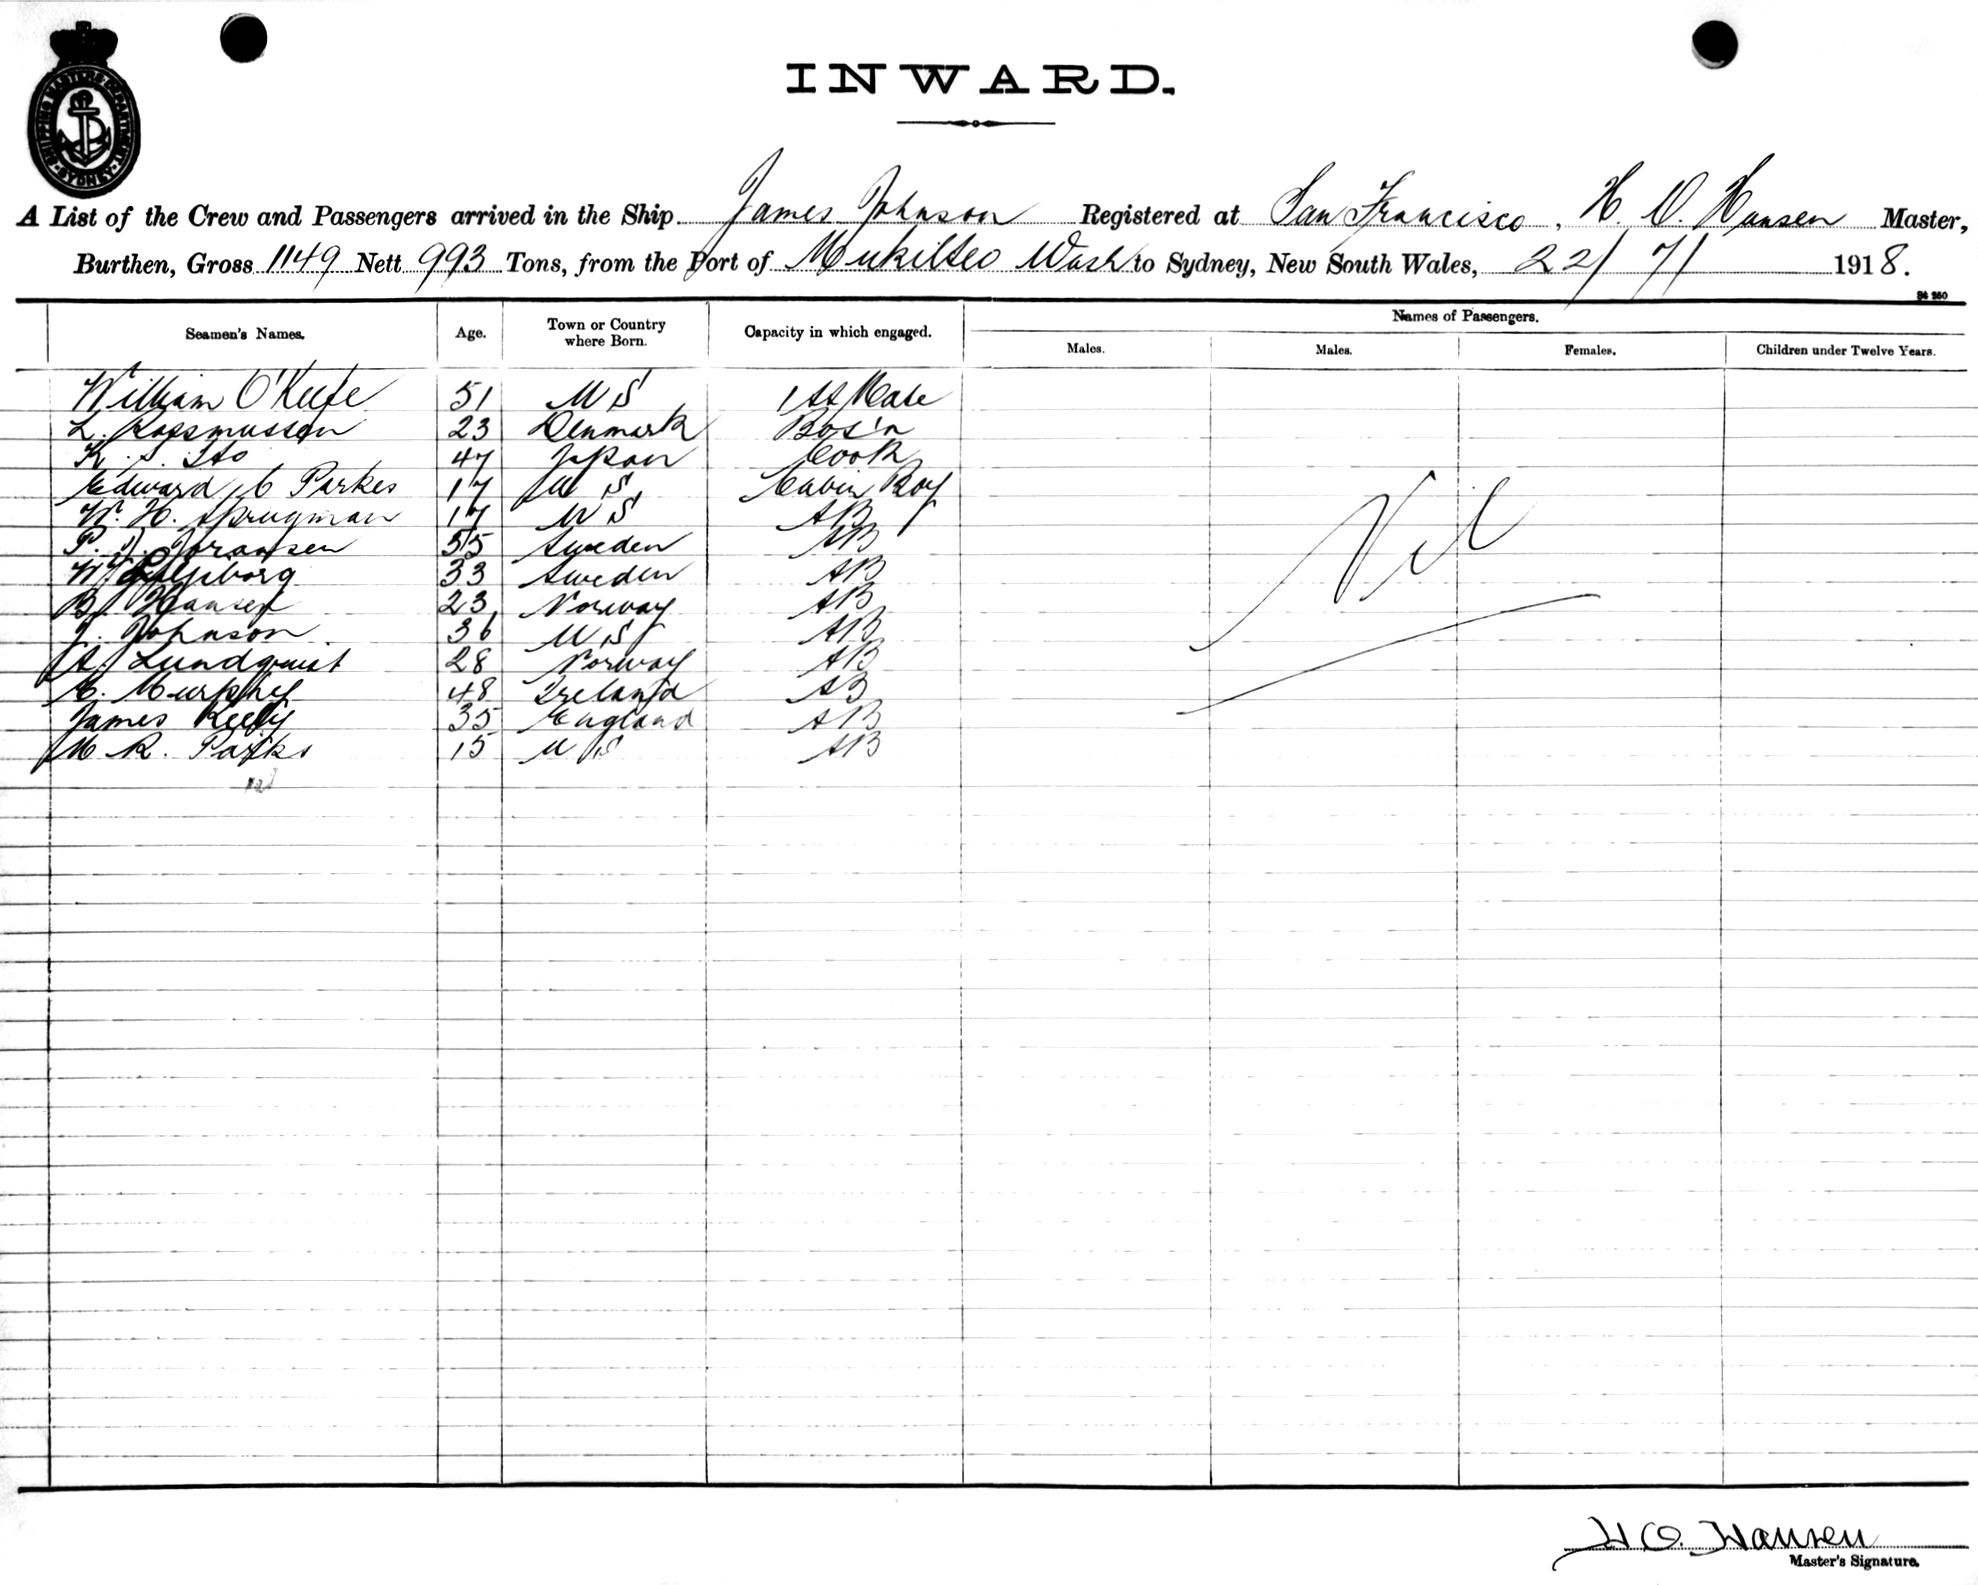 SHIPPING MASTERS DEPARTMENT SYDNEY
INWARD.
A List of the Crew and Passengers arrived in the Ship James Johnson Registered at San Francisco, H. O. Hansen Master,
Burthen, Gross 1149 Nett 993 Tons, from the Port of Mukilteo Wash to Sydney, New South Wales, 22/ 7/ 1918.
Names of Passengers.
Seamen's Names. Age. Town or Country where Born. Capacity in which engaged. Males. Males. Females. Children under Twelve Years.
William O'Keefe 51 U S 1st Mate
L. Rassmussen 23 Denmark Bos'n
K. S. Ito 47 Japan Cook
Edward C Parkes 17 U S Cabin Boy
W. H. Sprugman 17 U S AB
P. J. Joransen 55 Sweden AB
W 33 Sweden AB
B. Hansen 23 Norway AB
J. Johnson 36 U S AB
A. Lundquist 28 Norway AB
E. Murphy 48 Ireland AB
James Kelly 35 England AB
M. R. Parks 15 U S AB
Nil
H O. Hansen
Master's Signature.